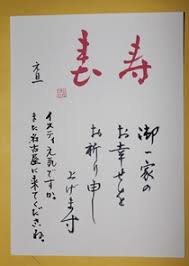 寿春
御一家の
お幸せを
お祈り申し
上げます
元旦
イスティ元気ですか。
また名古屋に来てくださいね。